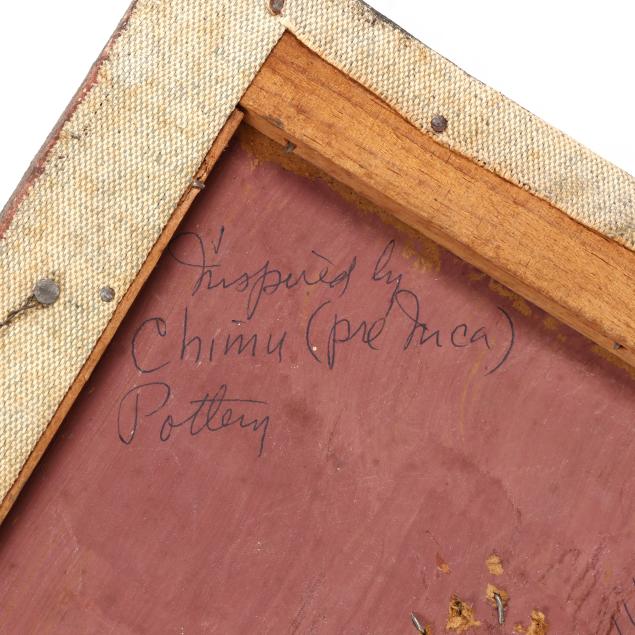 Inspired by
Chimu (pre Inca)
Pottery